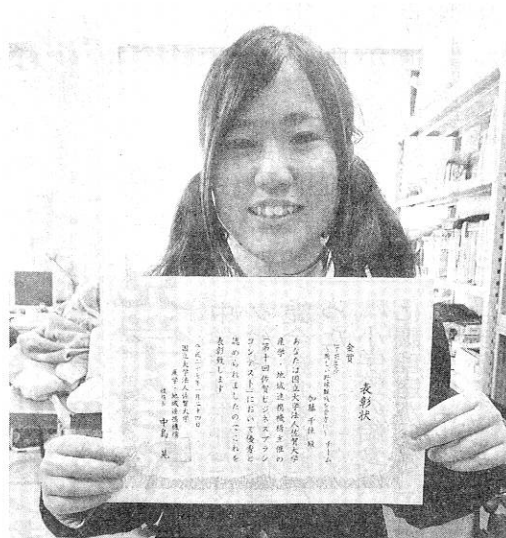 表彰状
金賞
チーム
加藤千佳 殿
あなたは国立大学法人佐賀大学
産学・地域連携機構主催の
「第十回佐賀ビジネスプラン
コンテスト」において優秀と
認められましたのでこれを
表彰致します
国立大学法人佐賀大学
産学・地域連携機構
中島 晃